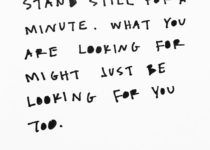 STAND STILL FOR A
MINUTE. WHAT YOU
ARE LOOKING FOR
MIGHT JUST BE
LOOKING FOR YOU
TOO.